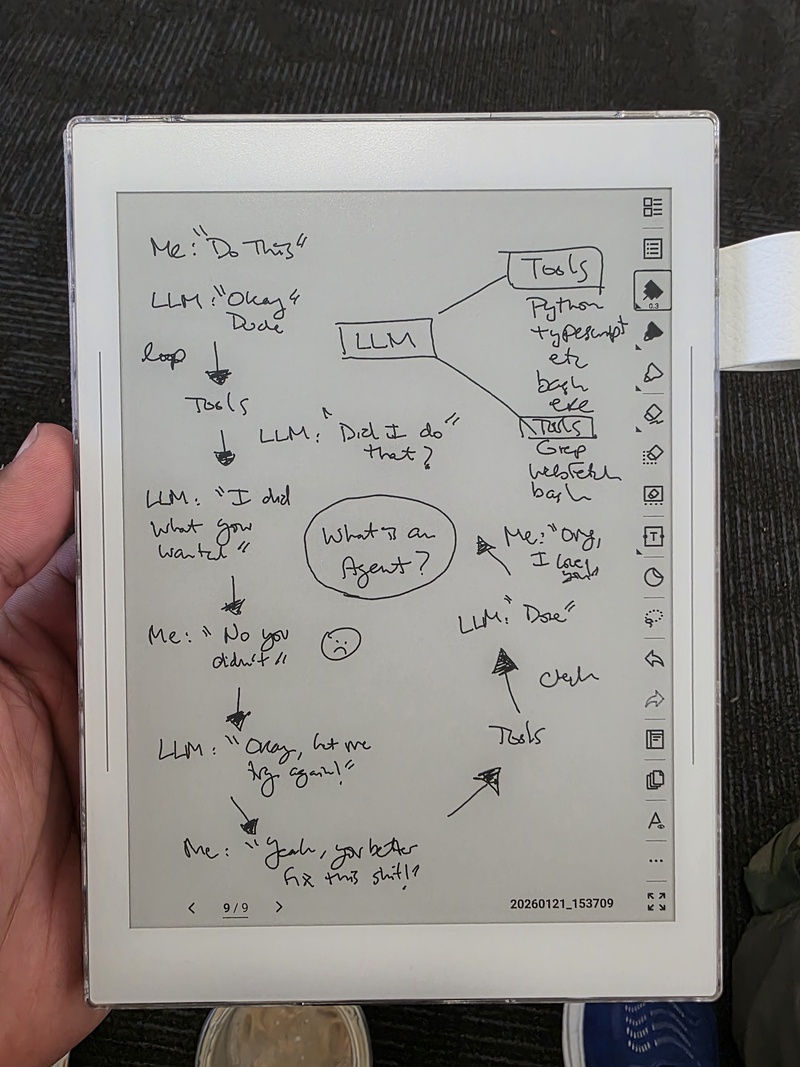 Me: "Do This"
LLM: "Okay"
Dude
loop
Tools
LLM: "I did
what you
wanted"
Me: "No you
didn't"
LLM: "Okay, let me
try again!"
Me: "Yeah, you better
fix this shit!"
LLM
Tools
Python
typescript
etc
bash
exe
Tools
Grep
webfetch
bash
LLM: "Did I do"
that?
What is an
Agent?
Me: "Omg,
I love
you"
LLM: "Done"
Tools
0.3
T
A
9 / 9
20260121_153709